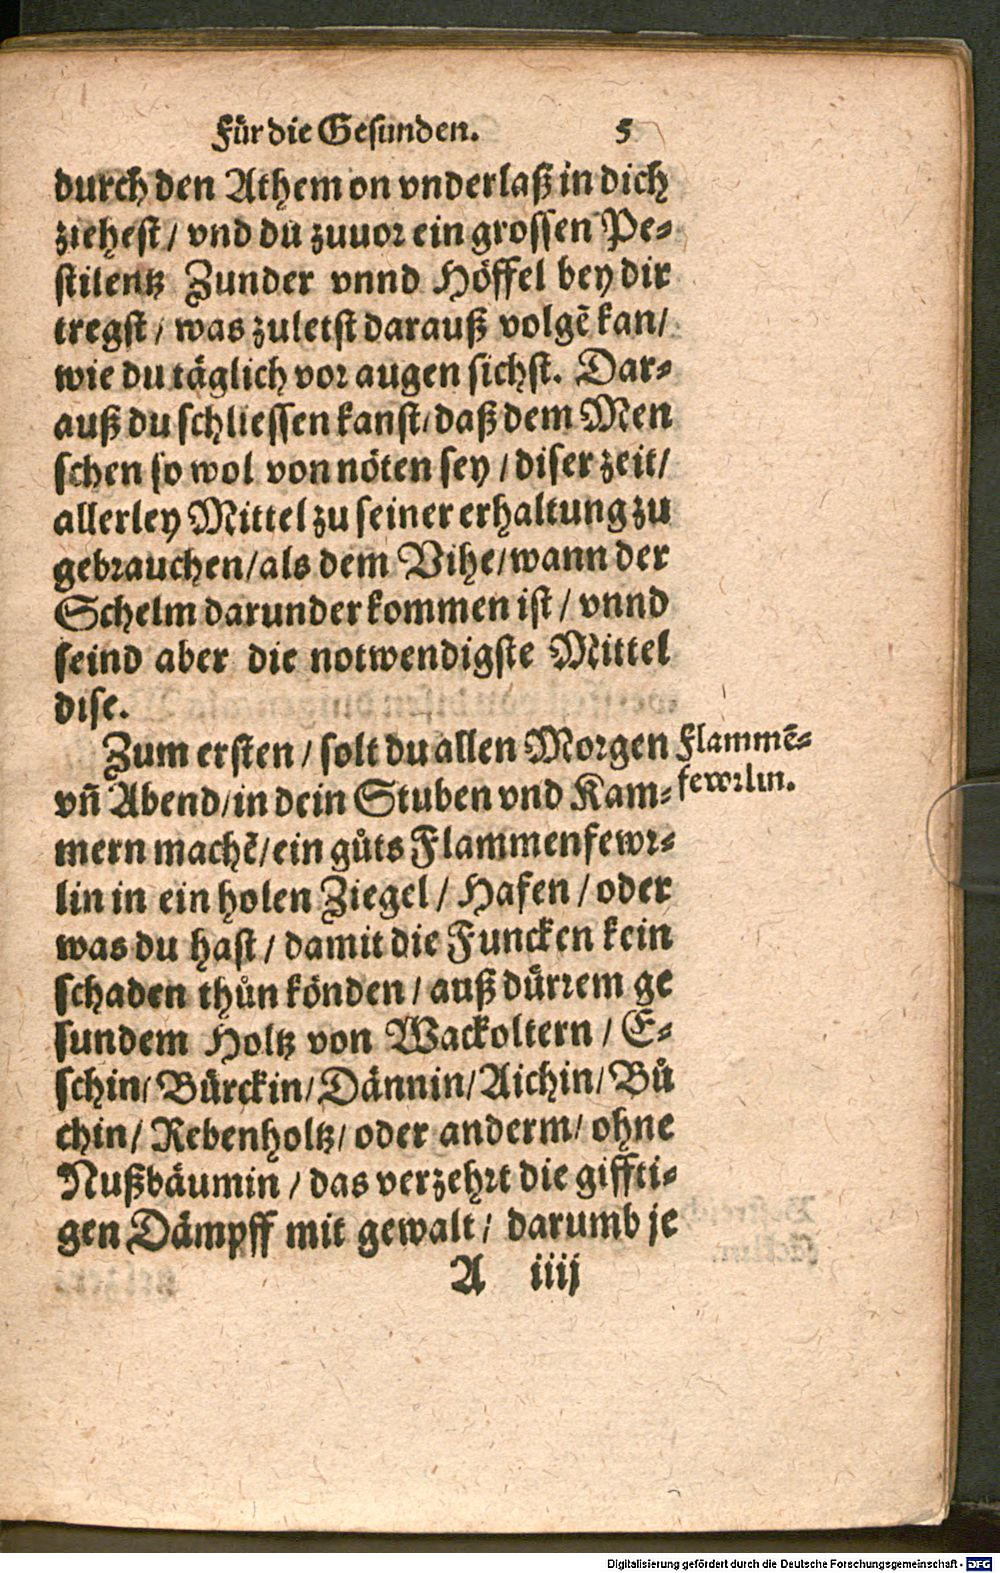 Für die Gesunden. 5
durch den Athem on vnderlaß in dich
ziehest / vnd du zuuor ein grossen Pe⸗
stilentz Zunder vnnd Höffel bey dir
tregst / was zuletst darauß volgẽ kan /
wie du täglich vor augen sichst. Dar⸗
auß du schliessen kanst / daß dem Men
schen so wol von nöten sey / diser zeit /
allerley Mittel zu seiner erhaltung zu
gebrauchen / als dem Vihe / wann der
Schelm darunder kommen ist / vnnd
seind aber die notwendigste Mittel
dise.
Zum ersten / solt du allen Morgen
Flammẽ⸗
vñ Abend / in dein Stuben vnd Kam⸗
fewrlin.
mern machẽ / ein gůts Flammenfewr⸗
lin in ein holen Ziegel / Hafen / oder
was du hast / damit die Funcken kein
schaden thůn könden / auß dürrem ge
sundem Holtz von Wackoltern / E⸗
schin / Bürckin / Dännin / Aichin / Bů
chin / Rebenholtz / oder anderm / ohne
Nußbäumin / das verzehrt die giffti⸗
gen Dämpff mit gewalt / darumb je
A iiij
Digitalisierung gefördert durch die Deutsche Forschungsgemeinschaft - DFG